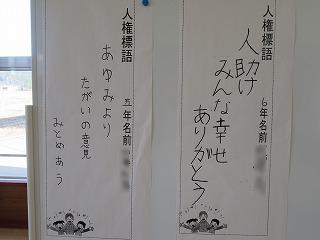 人権標語
人助け
みんな幸せ
ありがとう
6年名前
人権標語
あゆみより
たがいの意見
みとめあう
五年名前